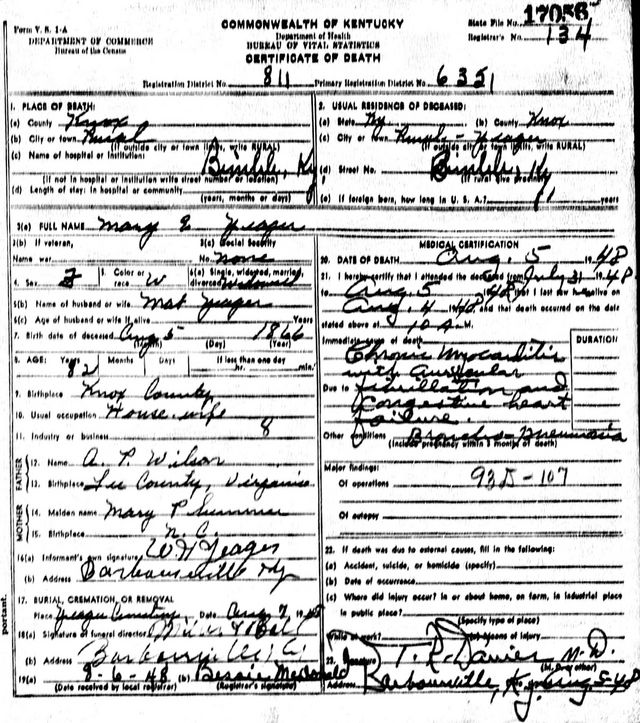 Form V. S. 1-A
DEPARTMENT OF COMMERCE
Bureau of the Census
COMMONWEALTH OF KENTUCKY
Department of Health
BUREAU OF VITAL STATISTICS
CERTIFICATE OF DEATH
State File No. 17056
Registrar's No. 134
Registration District No. 811 Primary Registration District No. 6351
1. PLACE OF DEATH:
(a) County Knox
(b) City or town Rural
(If outside city or town limits, write RURAL)
(c) Name of hospital or institution:
Bimble, Ky
(If not in hospital or institution write street number or location)
(d) Length of stay: In hospital or community
(years, months or days)
2. USUAL RESIDENCE OF DECEASED:
(a) State Ky (b) County Knox
(c) City or town Rural - Yeager
(If outside city or town limits, write RURAL)
(d) Street No. Bimble, Ky
(If rural give precinct)
(e) If foreign born, how long in U. S. A.? years
3(a) FULL NAME Mary E Yeager
3(b) If veteran, 3(c) Social Security
Name war No. none
4. Sex F 5. Color or race W 6(a) Single, widowed, married, divorced Widowed
6(b) Name of husband or wife Mat Yeager
6(c) Age of husband or wife if alive Years
7. Birth date of deceased Aug 5 1866
(Day) (Year)
8. AGE: Years Months Days If less than one day
82 hr. min.
9. Birthplace Knox County
10. Usual occupation House-wife
11. Industry or business 8
FATHER
12. Name A. P. Wilson
13. Birthplace Lee County, Virginia
MOTHER
14. Maiden name Mary Plummer
15. Birthplace N. C.
16(a) Informant's own signature W H Yeager
(b) Address Barbourville Ky
17. BURIAL, CREMATION, OR REMOVAL
Place Yeager Cemetery Date Aug 7 1948
18(a) Signature of funeral director
(b) Address Barbourville
19(a) 8-6-48 (b) Bessie McDonald
(Date received by local registrar) (Registrar's signature)
MEDICAL CERTIFICATION
20. DATE OF DEATH Aug. 5 1948
21. I hereby certify that I attended the deceased from July 31 1948
to Aug. 5 1948 that I last saw alive on
Aug. 4 1948 and that death occurred on the date
stated above at 10 A. M.
Immediate cause of death DURATION
Chronic Myocarditis
with Auricular
Due to fibrillation and
Congestive heart
failure.
Other conditions Broncho-Pneumonia
(Include pregnancy within 3 months of death)
Major findings:
Of operations 93D-107
Of autopsy
22. If death was due to external causes, fill in the following:
(a) Accident, suicide, or homicide (specify)
(b) Date of occurrence
(c) Where did injury occur? in or about home, on farm, in industrial place
in public place?
(Specify type of place)
While at work? (e) Means of injury
23. Signature T. R. Davies M. D.
(M. D. or other)
Address Barbourville, Ky. Aug. 5-48
portant.